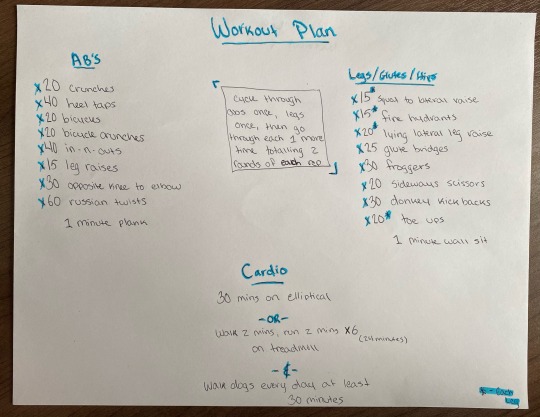 Workout Plan
AB's
x20 crunches
x40 heel taps
x20 bicycles
x20 bicycle crunches
x40 in-n-outs
x15 leg raises
x30 opposite knee to elbow
x60 russian twists
1 minute plank
cycle through
abs once, legs
once, then go
through each 1 more
time totalling 2
rounds of each rep
Legs/Glutes/Hips
x15* squat to lateral raise
x15* fire hydrants
x20* lying lateral leg raise
x25 glute bridges
x30 froggers
x20 sideways scissors
x30 donkey kickbacks
x20* toe ups
1 minute wall sit
Cardio
30 mins on elliptical
-OR-
walk 2 mins, run 2 mins x6 (24 minutes)
on treadmill
-&-
Walk dogs every day at least
30 minutes